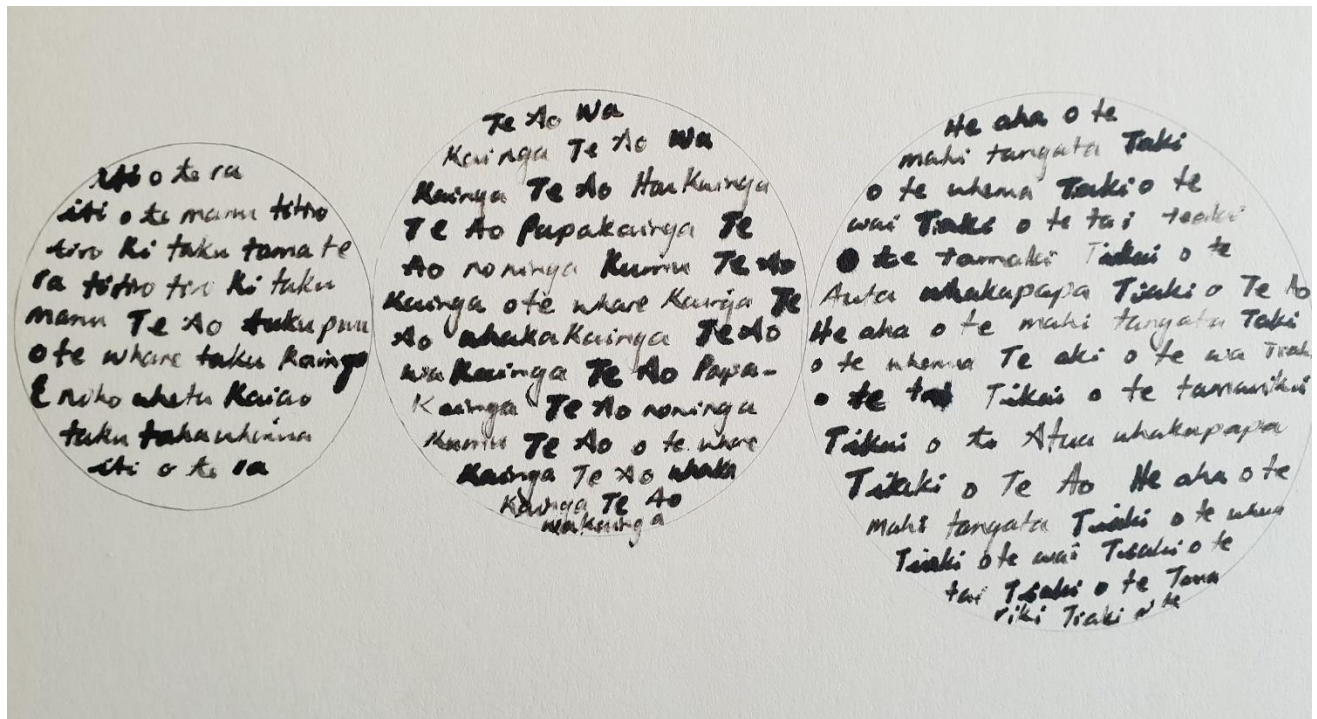 iti o te ra
iti o te manu titiro
tiro ki taku tama te
ra titiro tiro ki taku
manu Te Ao tuku puu
o te whare taku kainga
E noho whetu Kaiao
taku taha whina
iti o te ra
Te Ao Wa
Kainga Te Ao Wa
Kainga Te Ao Hau Kainga
Te Ao Papakainga Te
Ao noninga Kumu Te Ao
Kainga o te whare Kainga Te
Ao whakakainga Te Ao
wa Kainga Te Ao Papa-
Kainga Te Ao noninga
Kumu Te Ao o te whare
Kainga Te Ao whaka
Kainga Te Ao
wakainga
He aha o te
mahi tangata Taki
o te whenua Tiaki o te
wai Tiaki o te tai
o te tamaki Tiakai o te
Auta whakapapa Tiaki o Te Ao
He aha o te mahi tangata Taki
o te whenua Te aki o te wa Tiaki
o te tai Tikai o te tamariki
Tikai o te Atua whakapapa
Tiakaki o Te Ao He aha o te
mahi tangata Tiaki o te whenua
Tiaki o te wai Tiaki o te
tai Tiaki o te Tama
riki Tiaki o te